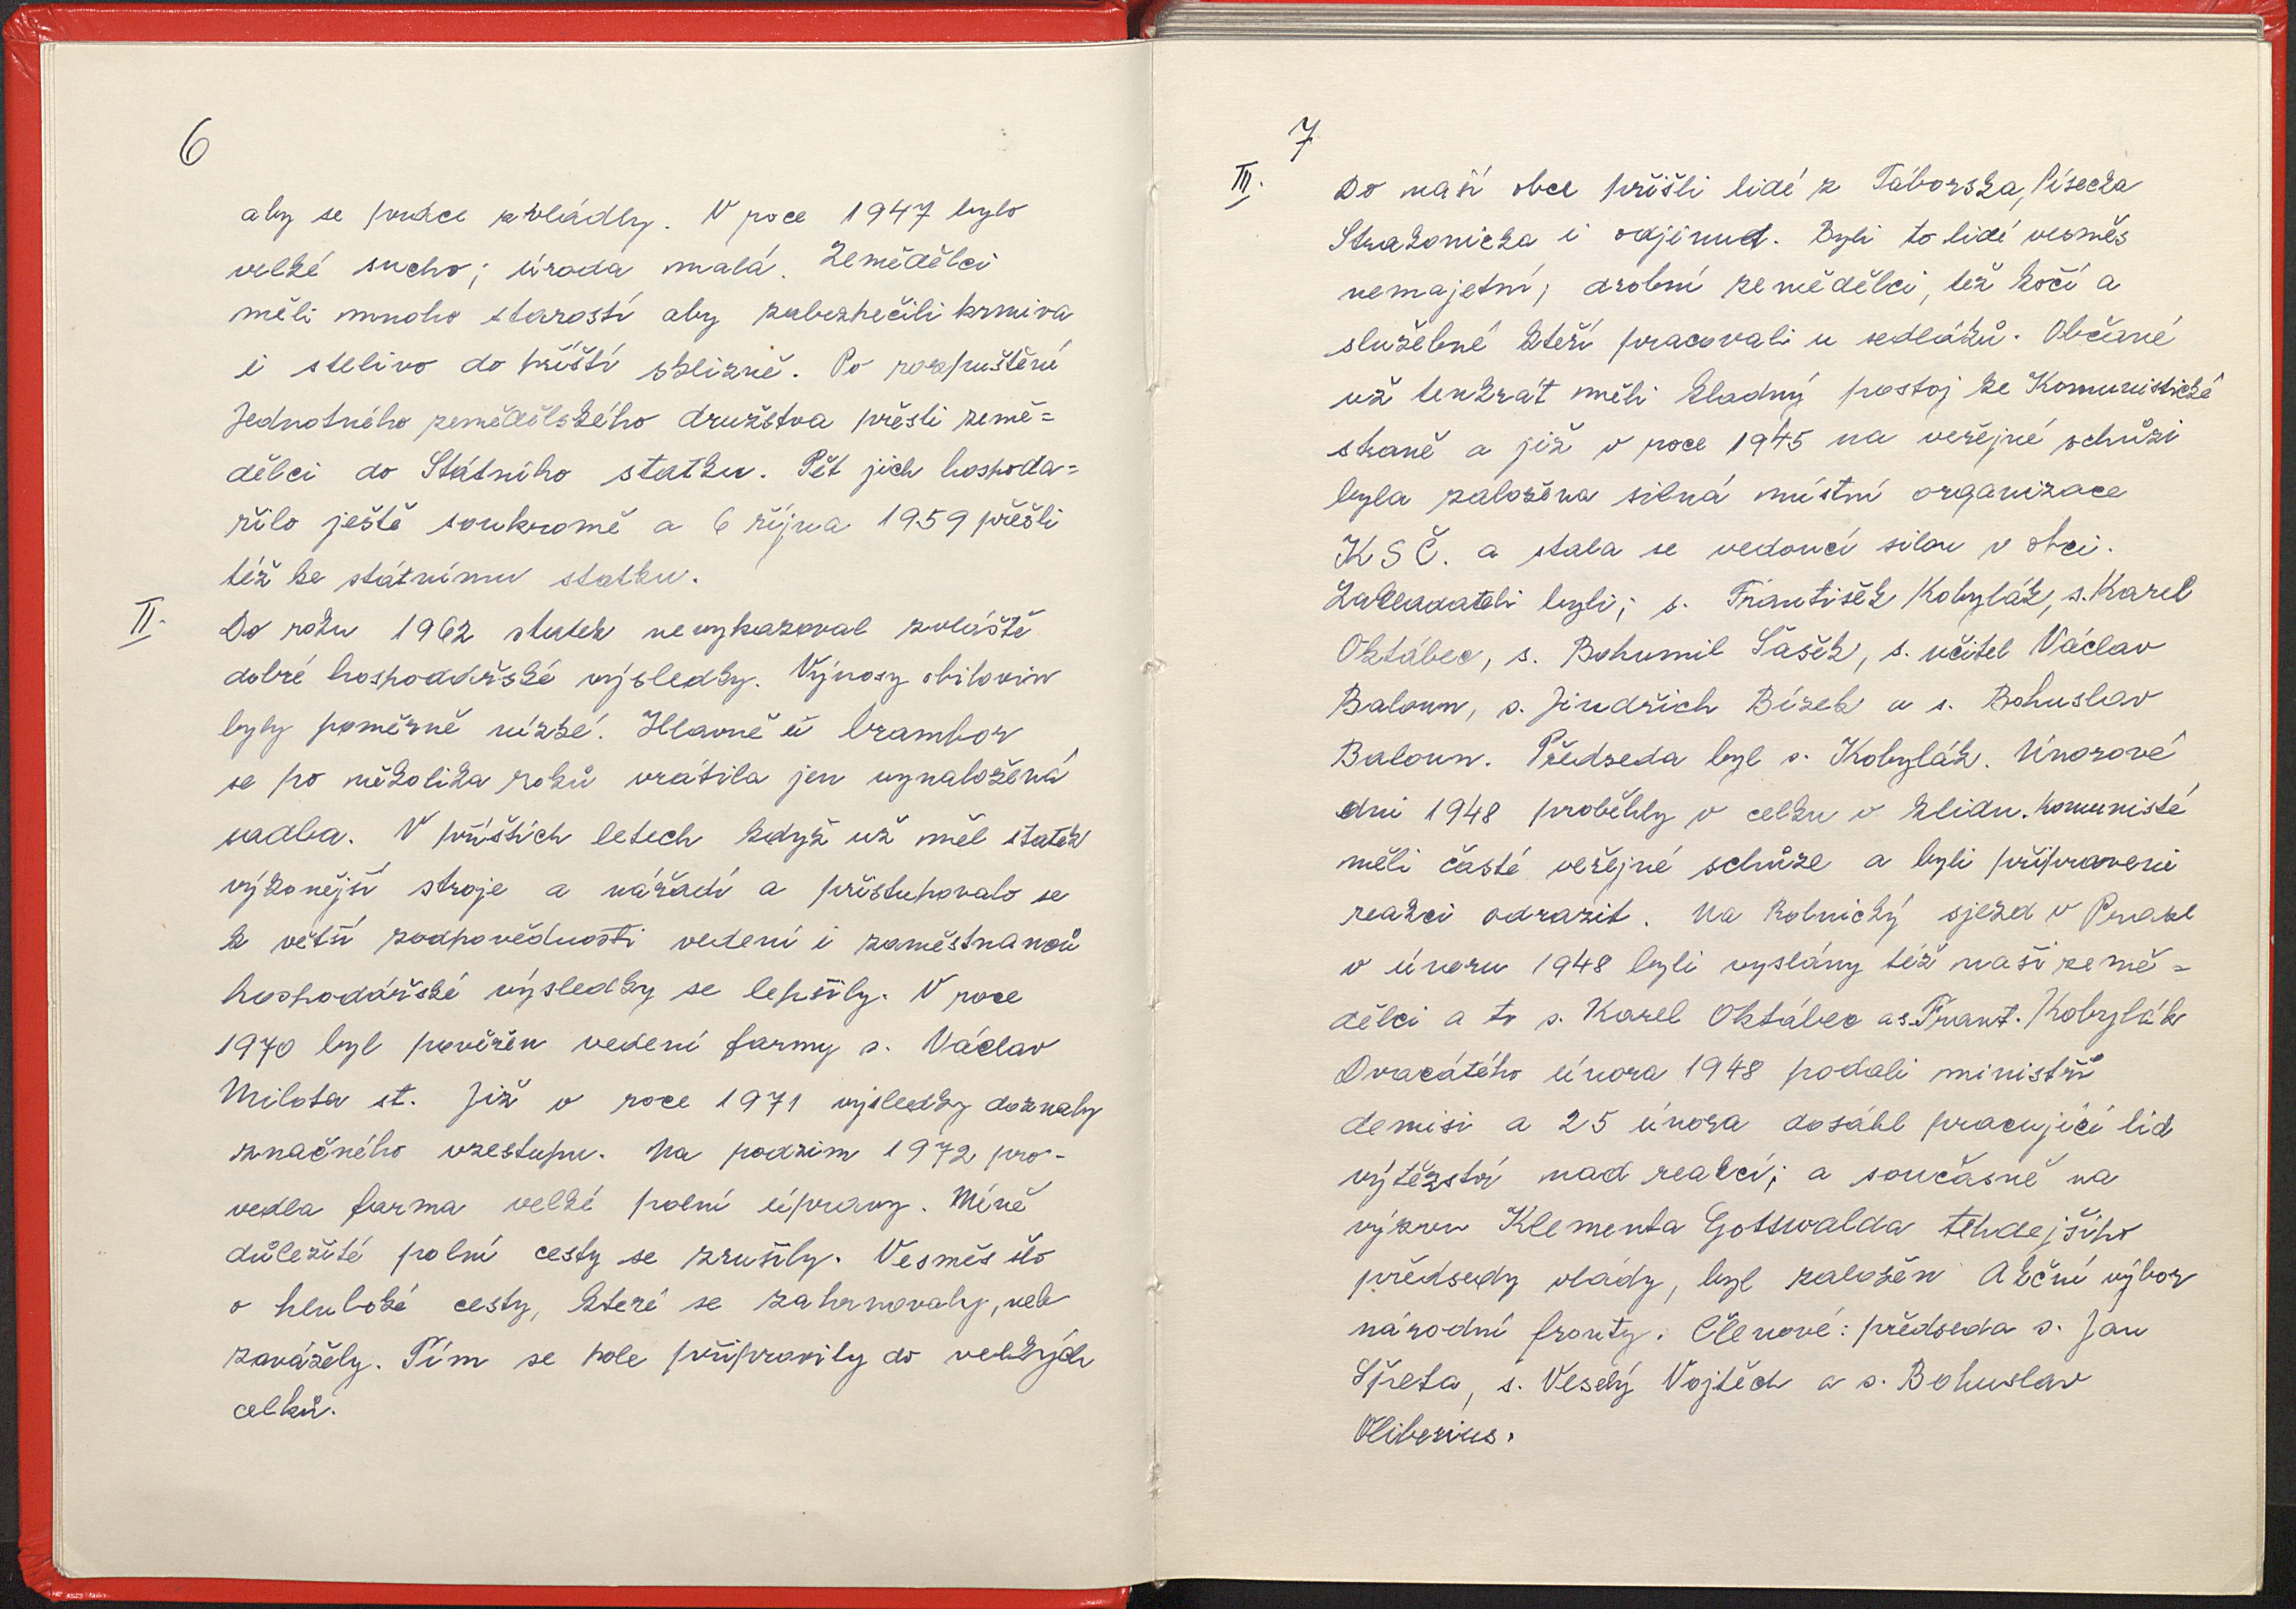 6
aby se práce zvládly. V roce 1947 bylo
velké sucho; úroda malá. Zemědělci
měli mnoho starostí aby zabezpečili krmiva
i stelivo do příští sklizně. Po rozpuštění
Jednotného zemědělského družstva přešli země=
dělci do Státního statku. Pět jich hospoda=
řilo ještě soukromě a 6 října 1959 přešli
též ke státnímu statku.
II. Do roku 1962 statek nevykazoval zvláště
dobré hospodářské výsledky. Výnosy obilovin
byly poměrně nízké. Hlavně u brambor
se po několika roků vrátila jen vynaložená
sadba. V příštích letech když už měl statek
výkonější stroje a nářadí a přistupovalo se
k větší zodpovědnosti vedení i zaměstnanců
hospodářské výsledky se lepšily. V roce
1970 byl pověřen vedení farmy s. Václav
Milota st. Již v roce 1971 výsledky doznaly
značného vzestupu. Na podzim 1972 pro-
vedla farma velké polní úpravy. Méně
důležité polní cesty se zrušily. Vesměs šlo
o hluboké cesty, které se zahrnovaly, neb
zavážely. Tím se pole připravily do velkých
celků.
7
III. Do naší obce přišli lidé z Táborska, Písecka
Strakonicka i odjinud. Byli to lidé vesměs
nemajetní; drobní zemědělci, též kočí a
služebné kteří pracovali u sedláků. Občané
už tenkrát měli kladný postoj ke Komunistické
straně a již v roce 1945 na veřejné schůzi
byla založena silná místní organizace
KSČ. a stala se vedoucí silou v obci.
Zakladateli byli; s. František Kobylák, s. Karel
Oktábec, s. Bohumil Šašek, s. učitel Václav
Baloun, s. Jindřich Bízek a s. Bohuslav
Baloun. Předseda byl s. Kobylák. Únorové
dni 1948 proběhly v celku v klidu. Komunisté
měli časté veřejné schůze a byli připraveni
reakci odrazit. Na Rolnický sjezd v Praze
v únoru 1948 byli vyslány též naši země=
dělci a to s. Karel Oktábec a s. Frant. Kobylák
Dvacátého února 1948 podali ministři
demisi a 25 února dosáhl pracující lid
výtězství nad reakcí; a současně na
výzvu Klementa Gottwalda tehdejšího
předsedy vlády, byl založen Akční výbor
národní fronty. Členové: předseda s. Jan
Špeta, s. Veselý Vojtěch a s. Bohuslav
Oliberius.